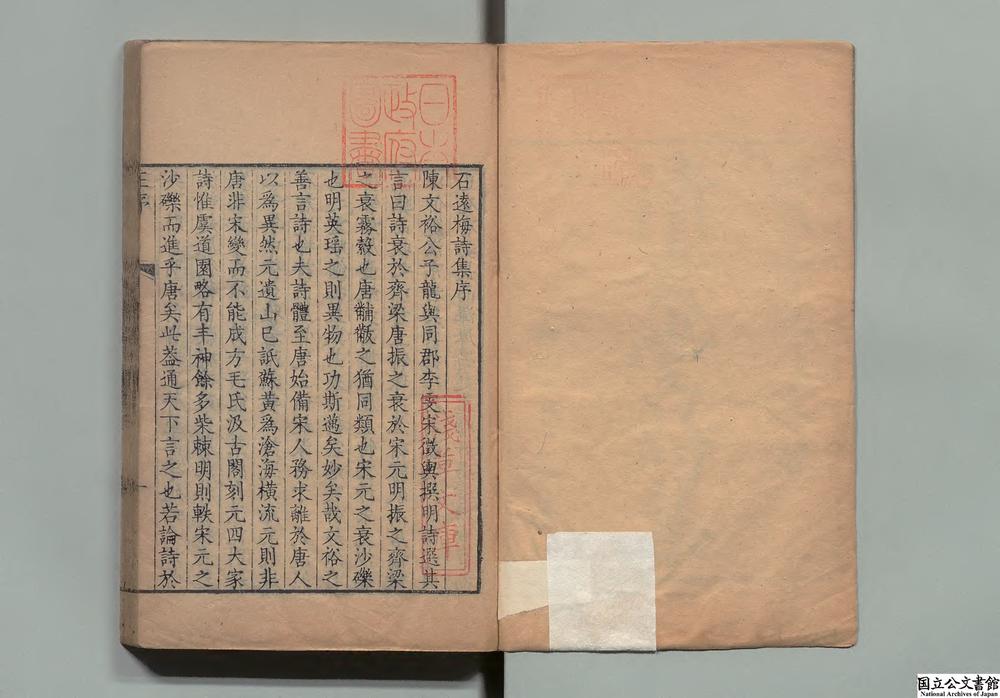 石遠梅詩集序
陳文裕公子龍與同郡李雯宋徵輿撰明詩選其
言曰詩衰於齊梁唐振之衰於宋元明振之齊梁
之衰霧縠也唐黼黻之猶同類也宋元之衰沙礫
也明英瑤之則異物也功斯邁矣妙矣哉文裕之
善言詩也夫詩體至唐始備宋人務求離於唐人
以爲異然元遺山已詆蘇黃爲滄海橫流元則非
唐非宋變而不能成方毛氏汲古閣刻元四大家
詩惟虞道園略有丰神餘多柴棘明則軼宋元之
沙礫而進乎唐矣此葢通天下言之也若論詩於
日本政府圖書
淺草文庫
国立公文書館
National Archives of Japan